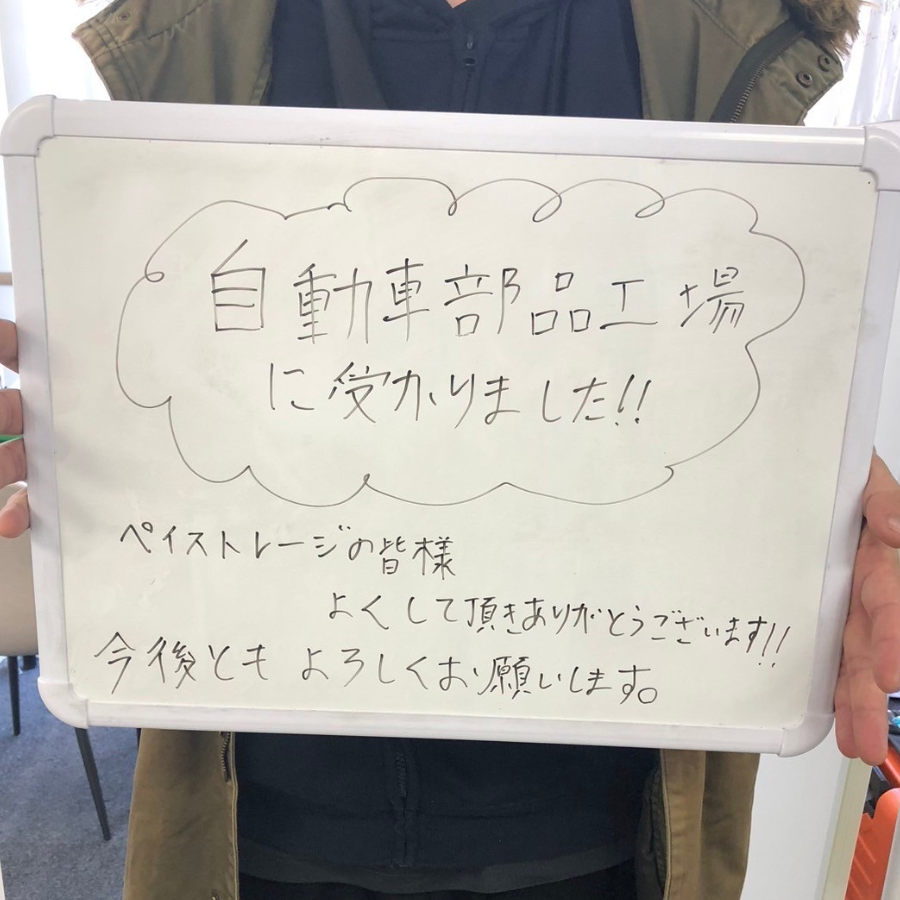 自動車部品工場
に受かりました!!
ペイストレージの皆様
よくして頂きありがとうございます!!
今後とも よろしくお願いします。